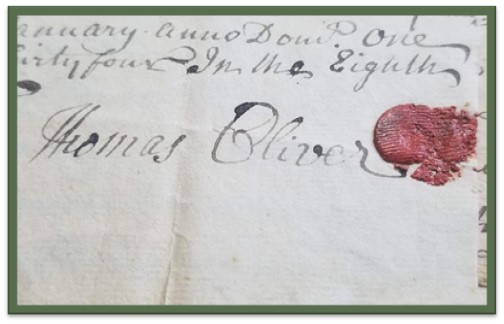 anuary anno Dom̃. One
irty four In the Eighth
Thomas Oliver